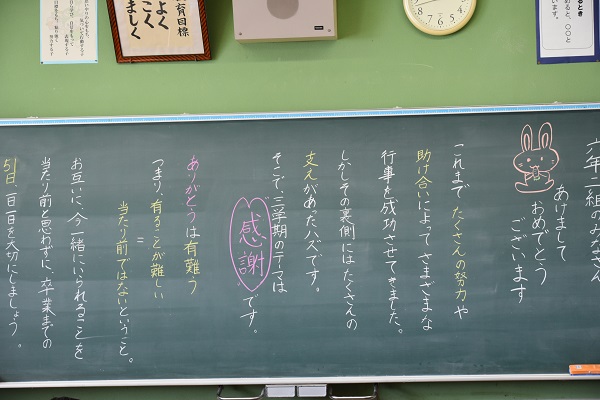 六年二組のみなさん
あけまして
おめでとう
ございます
これまでたくさんの努力や
助け合いによってさまざまな
行事を成功させてきました。
しかしその裏側にはたくさんの
支えがあったハズです。
そこで、三学期のテーマは
感謝です。
ありがとうは有難う
つまり、有ることが難しい
=
当たり前ではないということ。
お互いに、今一緒にいられることを
当たり前と思わずに、卒業までの
51日、一日一日を大切にしましょう。
育目標
よく
こく
ましく